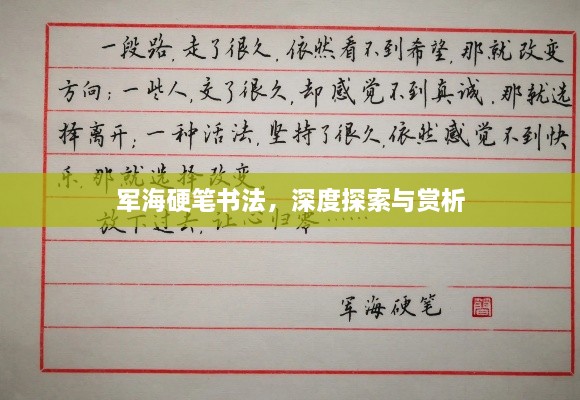 一段路，走了很久，依然看不到希望，那就改变
方向；一些人，交了很久，却感觉不到真诚，那就选
择离开；一种活法，坚持了很久，依然感觉不到快
乐，那就选择改变
军海硬笔书法，深度探索与赏析
放下过去，让心归零……
军海硬笔